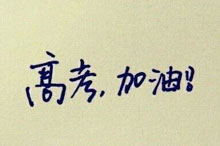 高考，加油！